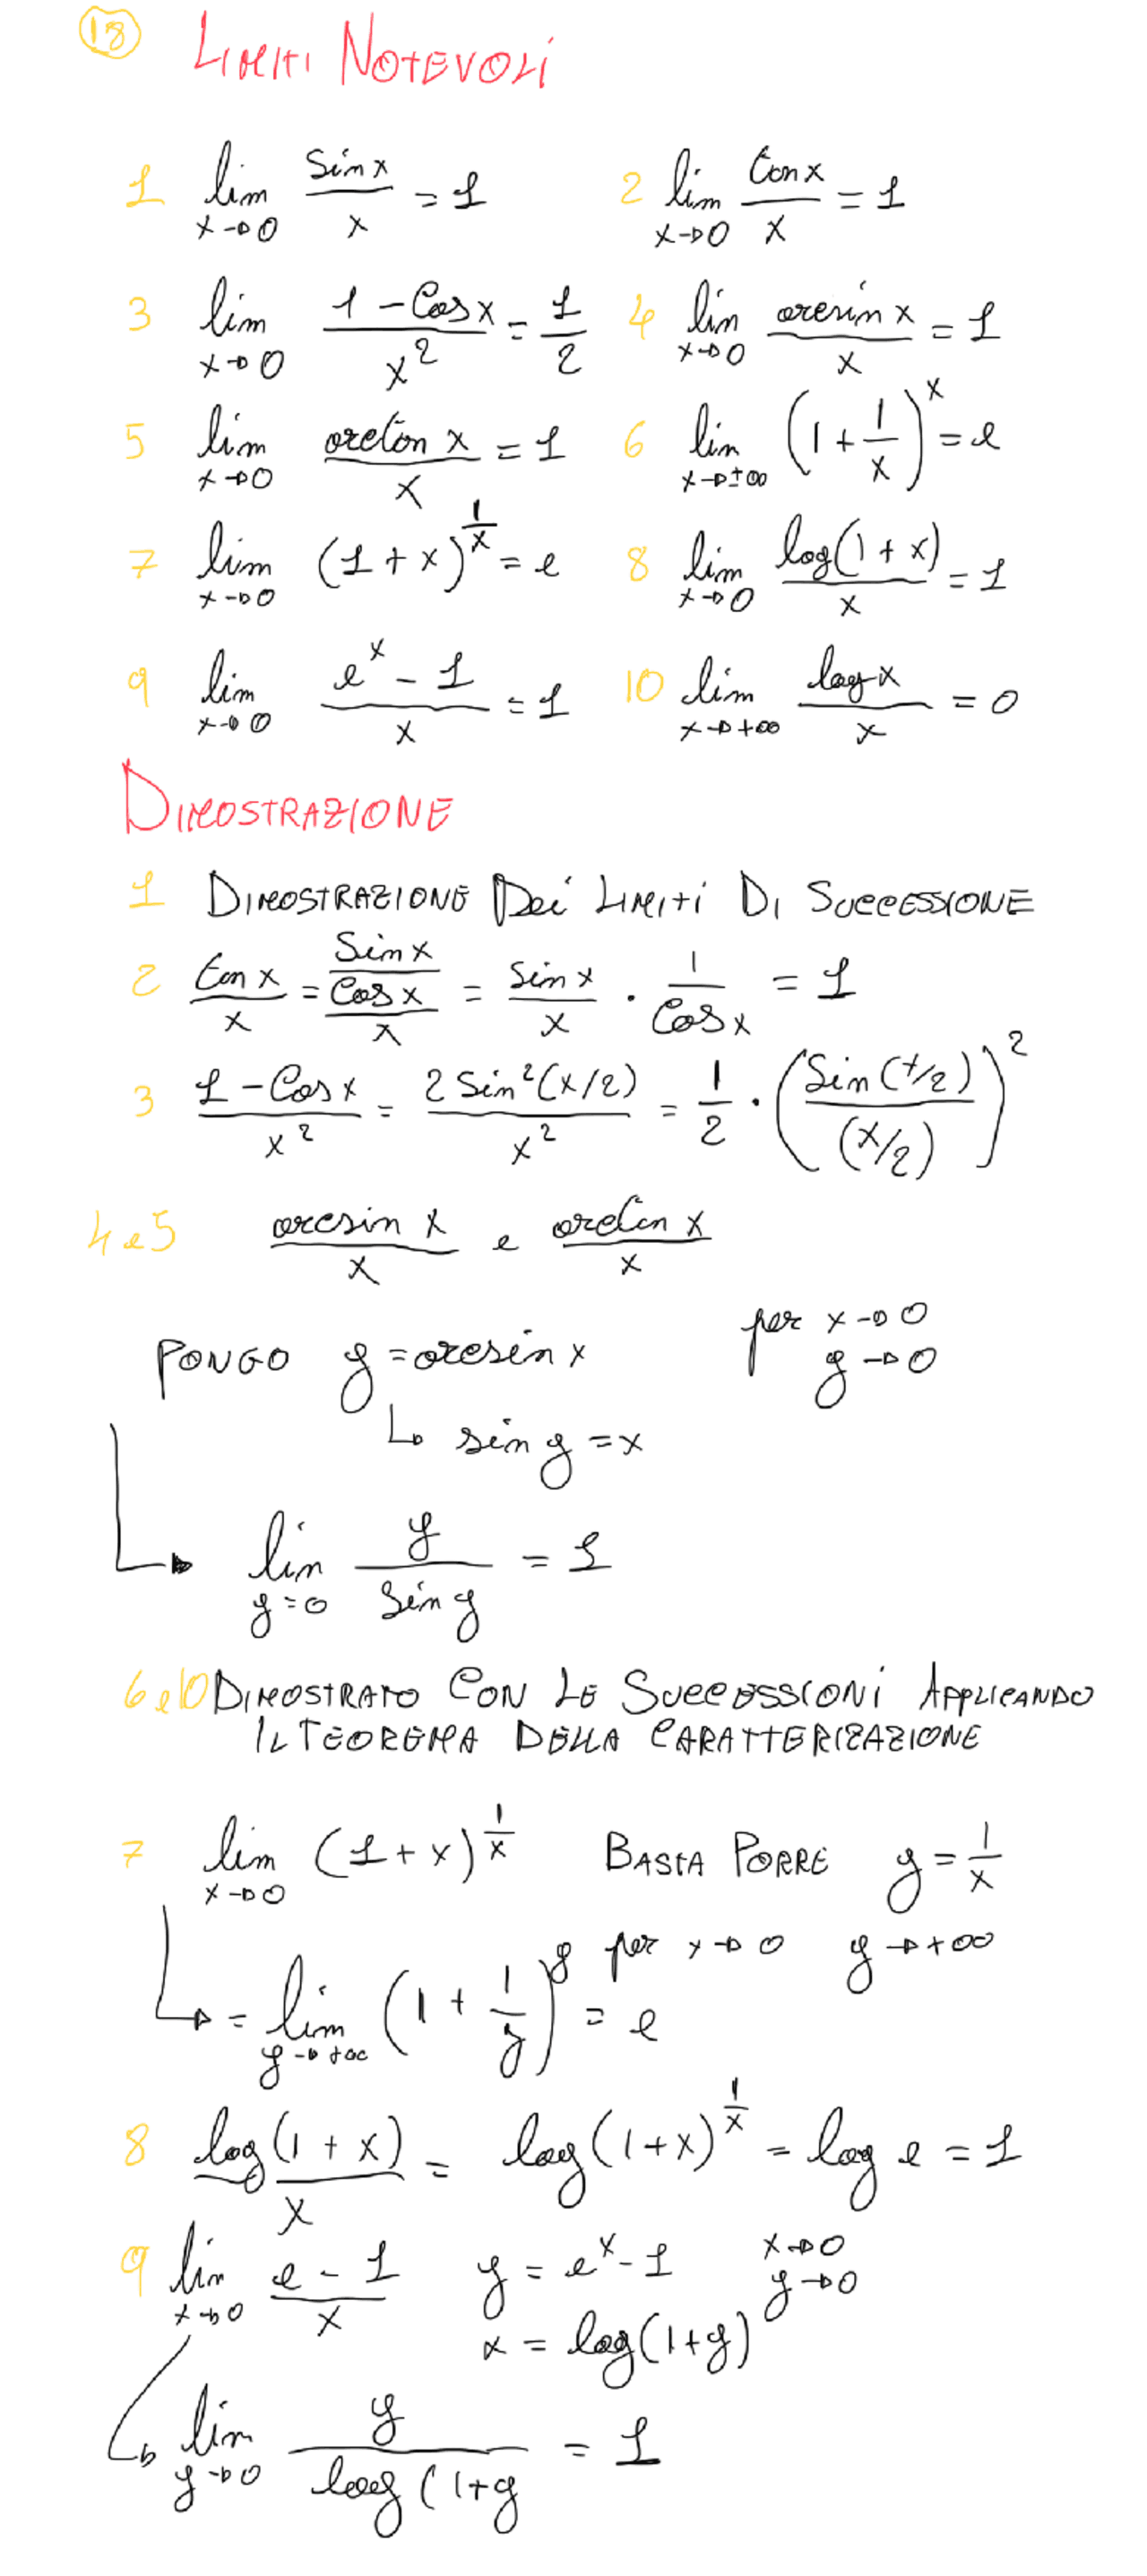 18 LIMITI NOTEVOLI
1 lim x→0 sin x / x = 1 2 lim x→0 tan x / x = 1
3 lim x→0 1 - cos x / x² = 1/2 4 lim x→0 arcsin x / x = 1
5 lim x→0 arctan x / x = 1 6 lim x→±∞ (1 + 1/x)^x = e
7 lim x→0 (1 + x)^(1/x) = e 8 lim x→0 log(1 + x) / x = 1
9 lim x→0 e^x - 1 / x = 1 10 lim x→+∞ log x / x = 0
DIMOSTRAZIONE
1 DIMOSTRAZIONE DEI LIMITI DI SUCCESSIONE
2 tan x / x = (sin x / cos x) / x = sin x / x · 1 / cos x = 1
3 1 - cos x / x² = 2 sin²(x/2) / x² = 1/2 · (sin(x/2) / (x/2))²
4 e 5 arcsin x / x e arctan x / x
PONGO y = arcsin x per x→0
y→0
↳ sin y = x
→ lim y=0 y / sin y = 1
6 e 10 DIMOSTRATO CON LE SUCCESSIONI APPLICANDO
IL TEOREMA DELLA CARATTERIZAZIONE
7 lim x→0 (1 + x)^(1/x) BASTA PORRE y = 1/x
per x→0 y→+∞
↳ = lim y→+∞ (1 + 1/y)^y = e
8 log(1 + x) / x = log(1+x)^(1/x) = log e = 1
9 lim x→0 e - 1 / x y = e^x - 1 x→0
y→0
x = log(1+y)
↳ lim y→0 y / log(1+y = 1